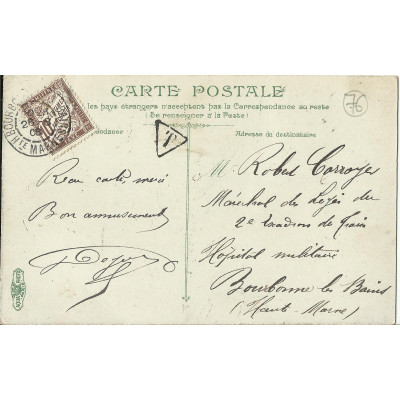 CARTE POSTALE
les pays étrangers n'acceptent pas la Correspondance au recto
(Se renseigner à la Poste)
Correspondance
Adresse du destinataire
T
10
Beau carte, merci
Bon amusement
M. Robert Carroyer
Maréchal des Logis du
2e Escadron du Train
Hôpital militaire
Bourbonne les Bains
(Haute Marne)